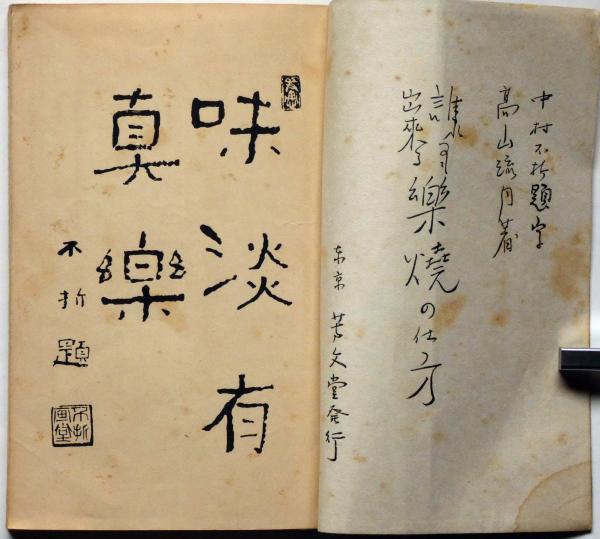 中村不折題字
高山流月著
誰にも
出來る
樂燒の仕方
東京 芳文堂発行
味淡有
真樂
不折題
不折
画堂